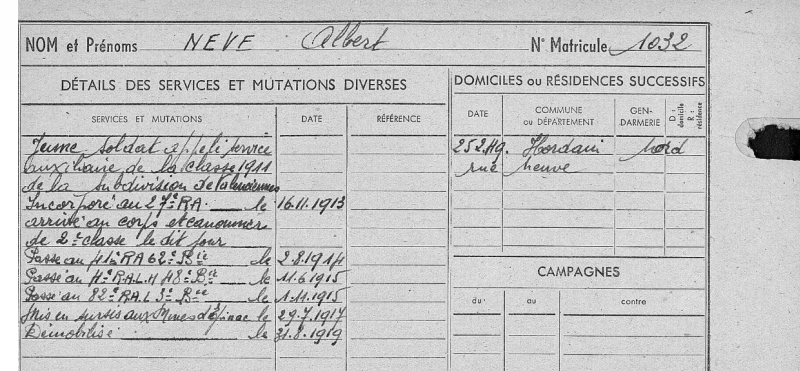 NOM et Prénoms NEVE Albert N° Matricule 1032
DÉTAILS DES SERVICES ET MUTATIONS DIVERSES
DOMICILES ou RÉSIDENCES SUCCESSIFS
SERVICES ET MUTATIONS DATE RÉFÉRENCE
DATE COMMUNE ou DÉPARTEMENT GEN-DARMERIE D : domicile R : résidence
Jeune soldat appelé service
auxiliaire de la classe 1911
de la subdivision de Valenciennes
Incorporé au 27e RA le 16.11.1913
arrivé au corps et canonnier
de 2e classe le dit jour
Passé au 41e RA 62e Bie le 2.8.1914
Passé au 4e R.A.L.H 48e Bie le 11.6.1915
Passé au 82e R.A.L 3e Bie le 1.11.1915
Mis en sursis aux Mines d'Epinac le 29.7.1917
Démobilisé le 31.8.1919
25.2.49. Hordain Nord
rue neuve
CAMPAGNES
du au contre